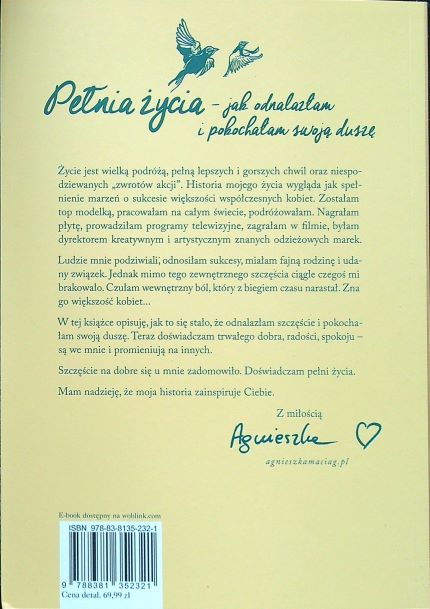 Pełnia życia – jak odnalazłam
i pokochałam swoją duszę
Życie jest wielką podróżą, pełną lepszych i gorszych chwil oraz niespo-
dziewanych „zwrotów akcji”. Historia mojego życia wygląda jak speł-
nienie marzeń o sukcesie większości współczesnych kobiet. Zostałam
top modelką, pracowałam na całym świecie, podróżowałam. Nagrałam
płytę, prowadziłam programy telewizyjne, zagrałam w filmie, byłam
dyrektorem kreatywnym i artystycznym znanych odzieżowych marek.
Ludzie mnie podziwiali, odnosiłam sukcesy, miałam fajną rodzinę i uda-
ny związek. Jednak mimo tego zewnętrznego szczęścia ciągle czegoś mi
brakowało. Czułam wewnętrzny ból, który z biegiem czasu narastał. Zna
go większość kobiet...
W tej książce opisuję, jak to się stało, że odnalazłam szczęście i pokocha-
łam swoją duszę. Teraz doświadczam trwałego dobra, radości, spokoju –
są we mnie i promieniują na innych.
Szczęście na dobre się u mnie zadomowiło. Doświadczam pełni życia.
Mam nadzieję, że moja historia zainspiruje Ciebie.
Z miłością
Agnieszka
agnieszkamaciag.pl
E-book dostępny na woblink.com
ISBN 978-83-8135-232-1
9 788381 352321
Cena detal. 69,99 zł